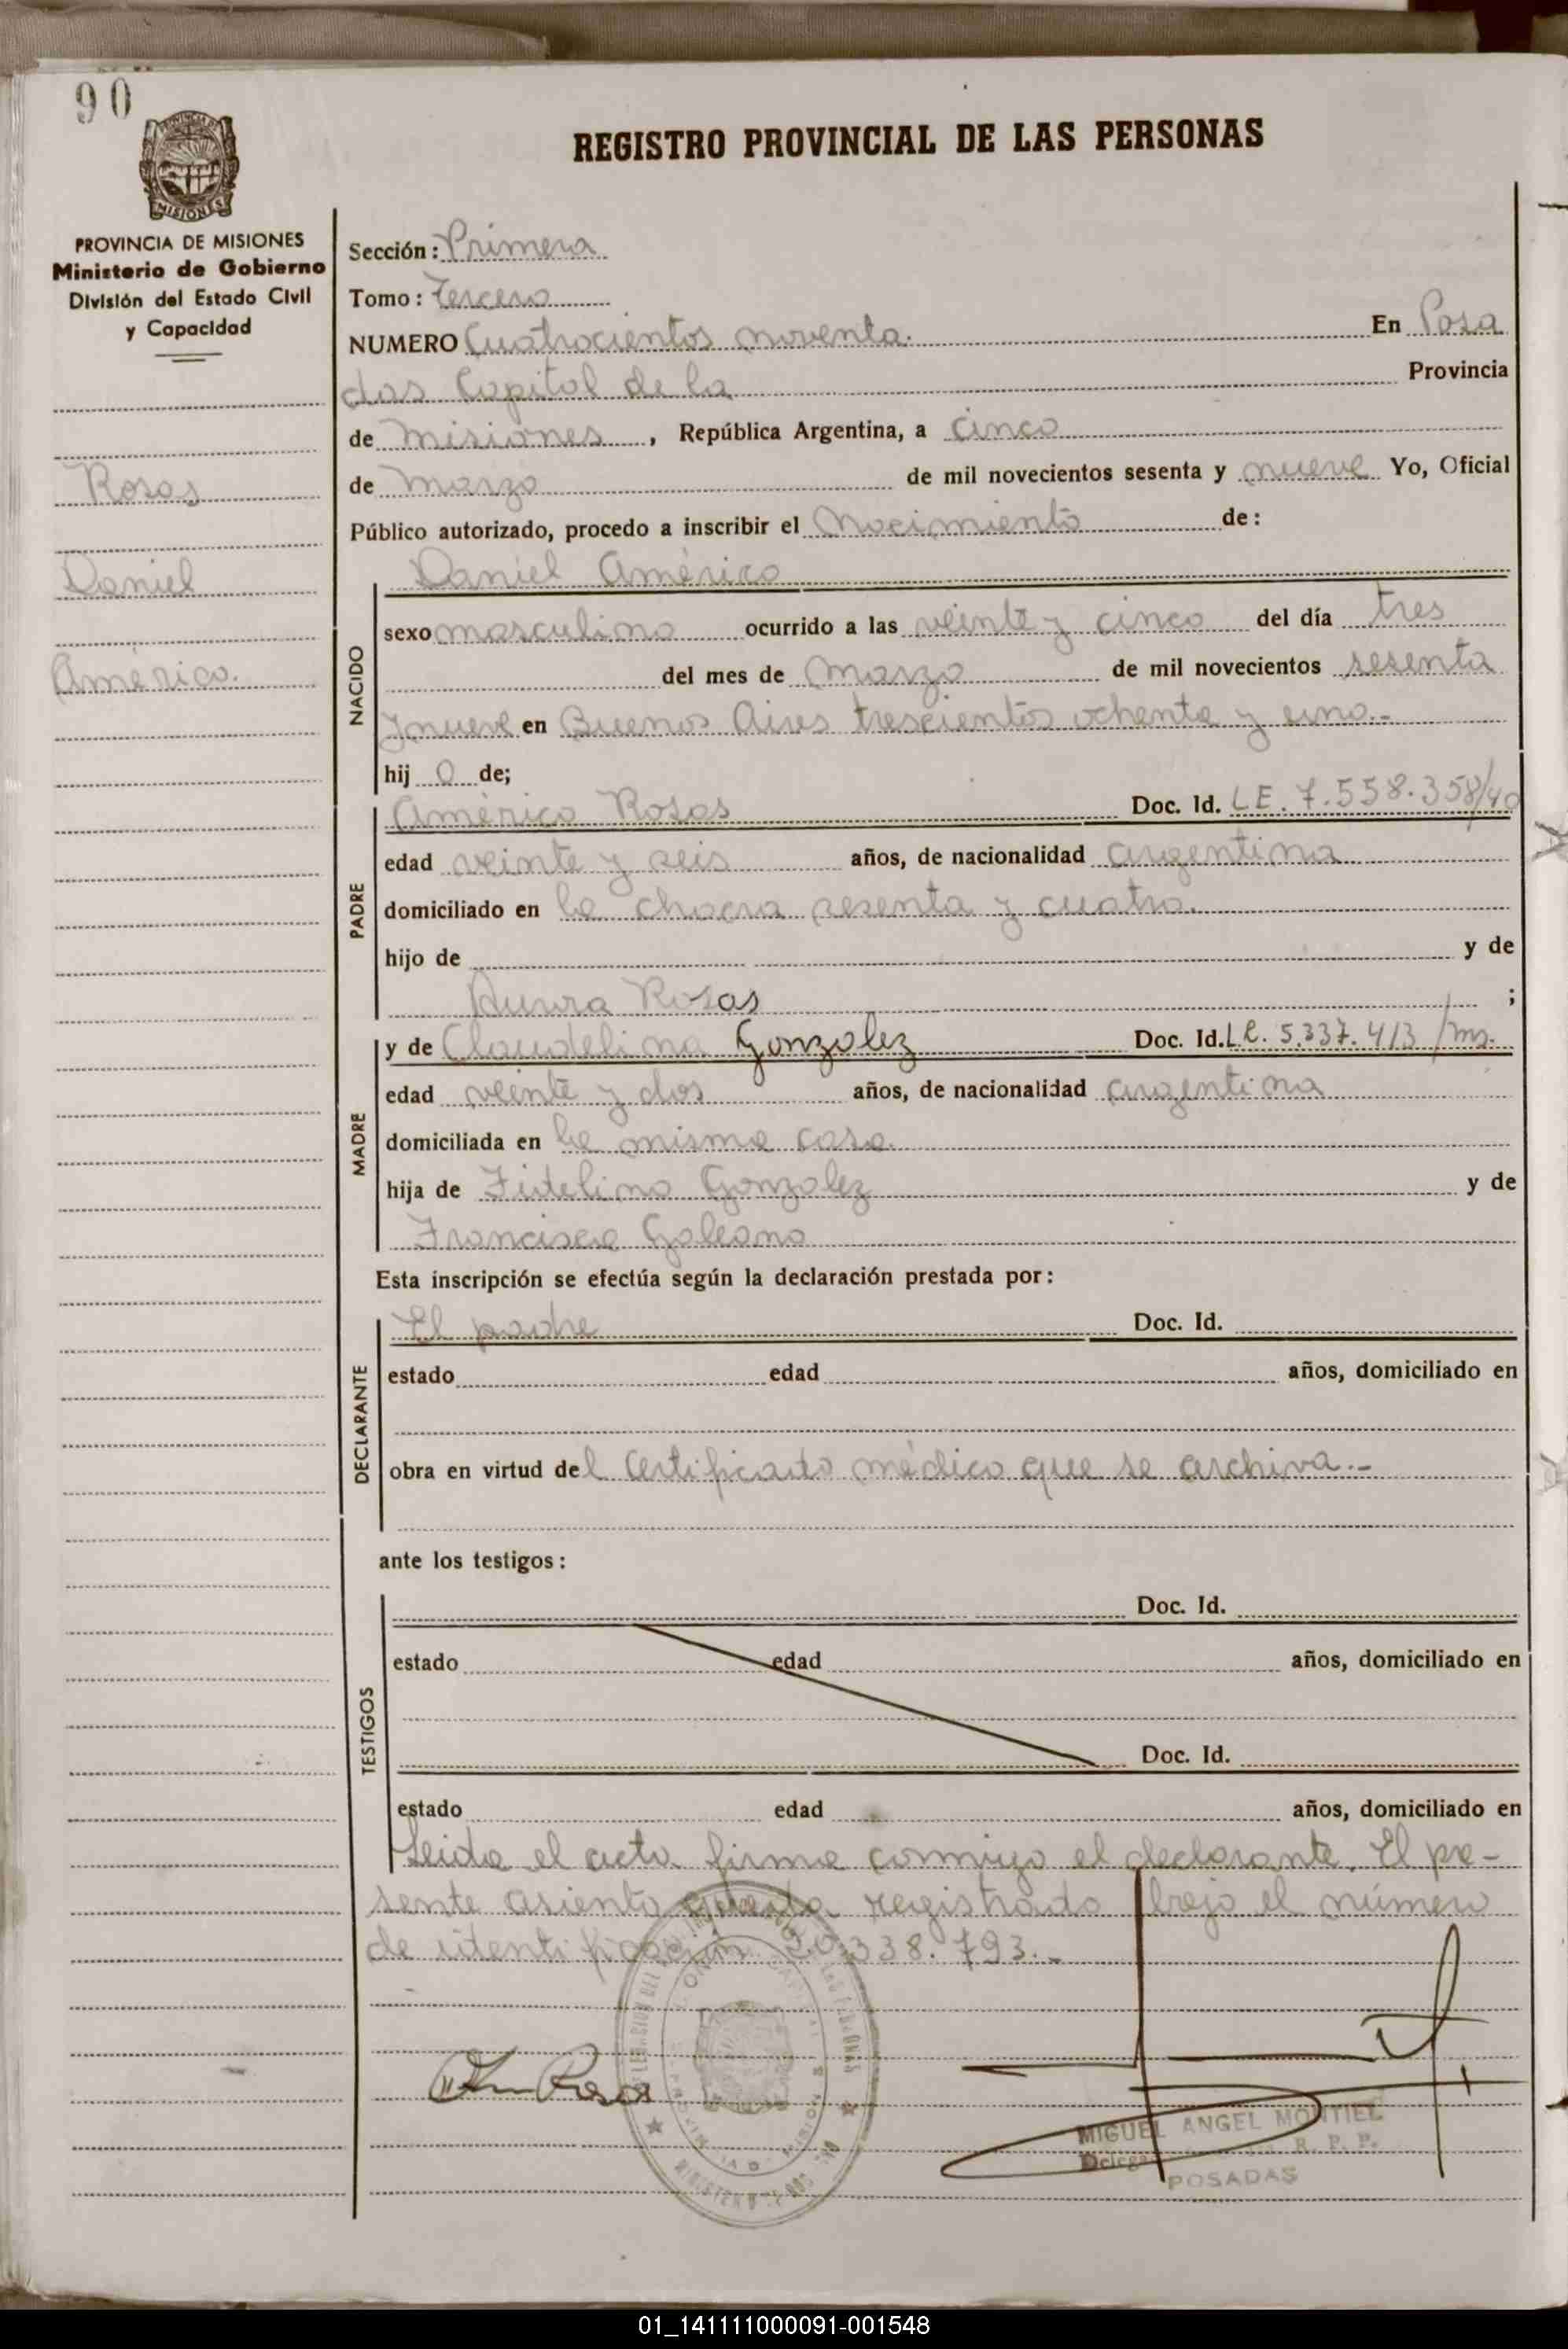 90
REGISTRO PROVINCIAL DE LAS PERSONAS
MISIONES
PROVINCIA DE MISIONES
Ministerio de Gobierno
División del Estado Civil
y Capacidad
Rosas
Daniel
Américo.
Sección: Primera
Tomo: Tercero
NUMERO Cuatrocientos noventa. En Posa
das Capital de la Provincia
de Misiones, República Argentina, a cinco
de Marzo de mil novecientos sesenta y nueve Yo, Oficial
Público autorizado, procedo a inscribir el Nacimiento de:
Daniel Américo
NACIDO
sexo masculino ocurrido a las veinte y cinco del día tres
del mes de Marzo de mil novecientos sesenta
y nueve en Buenos Aires trescientos ochenta y uno.-
hij o de;
PADRE
Américo Rosas Doc. Id. LE. 7.558.358/40
edad veinte y seis años, de nacionalidad argentina
domiciliado en la chacra sesenta y cuatro.
hijo de y de
Aurora Rosas ;
MADRE
y de Claudelina Gonzalez Doc. Id. L.C. 5.337.413 /ms.
edad veinte y dos años, de nacionalidad argentina
domiciliada en la misma casa.
hija de Fidelino Gonzalez y de
Francisca Galeano
Esta inscripción se efectúa según la declaración prestada por:
DECLARANTE
El padre Doc. Id.
estado edad años, domiciliado en
obra en virtud del Certificado médico que se archiva.-
ante los testigos:
TESTIGOS
Doc. Id.
estado edad años, domiciliado en
Doc. Id.
estado edad años, domiciliado en
Leida el acta firma conmigo el declarante. El pre-
sente asiento queda registrado bajo el número
de identificación 20.338.793.-
Rosas
MIGUEL ANGEL MONTIEL
R. P. P.
POSADAS
01_141111000091-001548